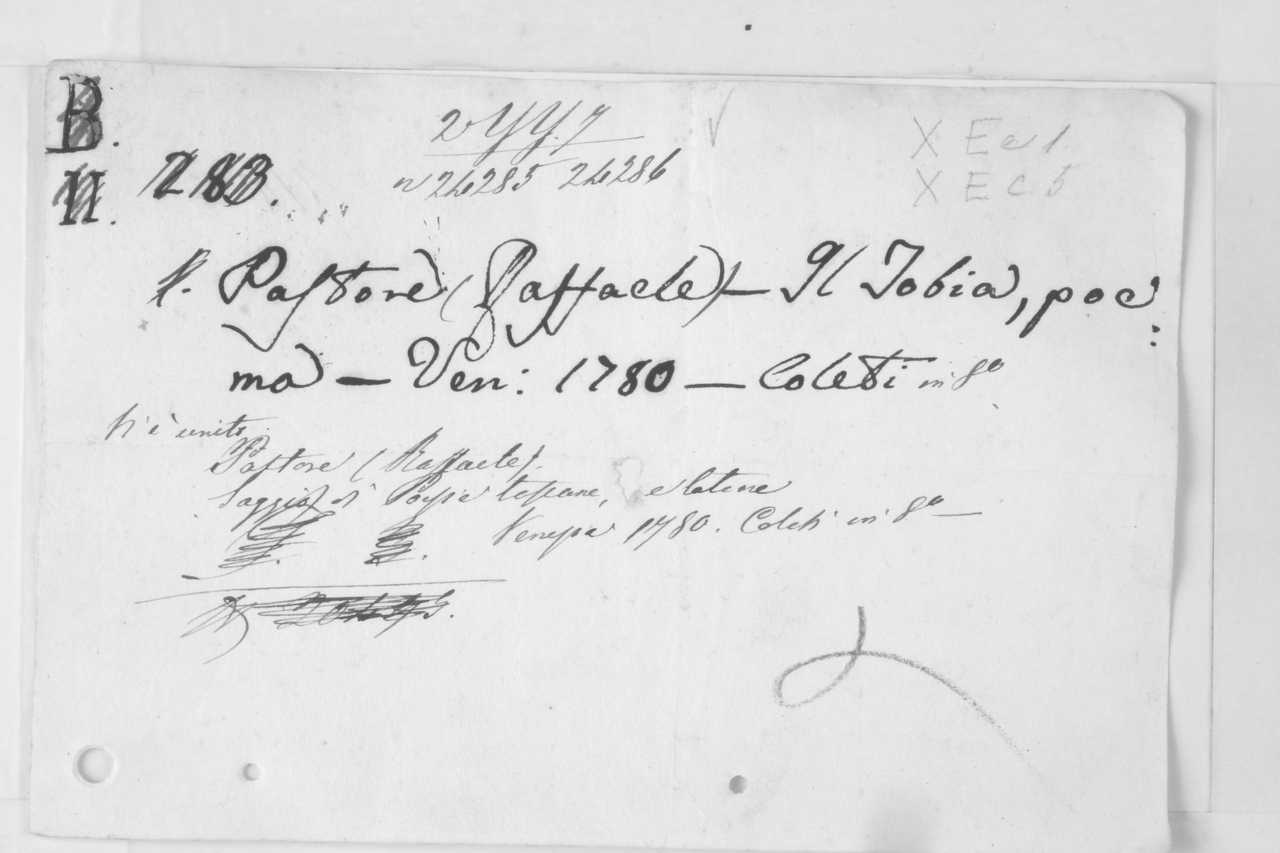 B.
2 YY. 7
X E e 1.
II. 283.
n 24285 24286
X E c 5
P. Pastore (Raffaele) – Il Tobia, poe:
ma – Ven: 1780 – Coleti in 8º
Vi è unito
Pastore (Raffaele).
Saggio di Poesie toscane, e latine
Venezia 1780. Coleti in 8º –